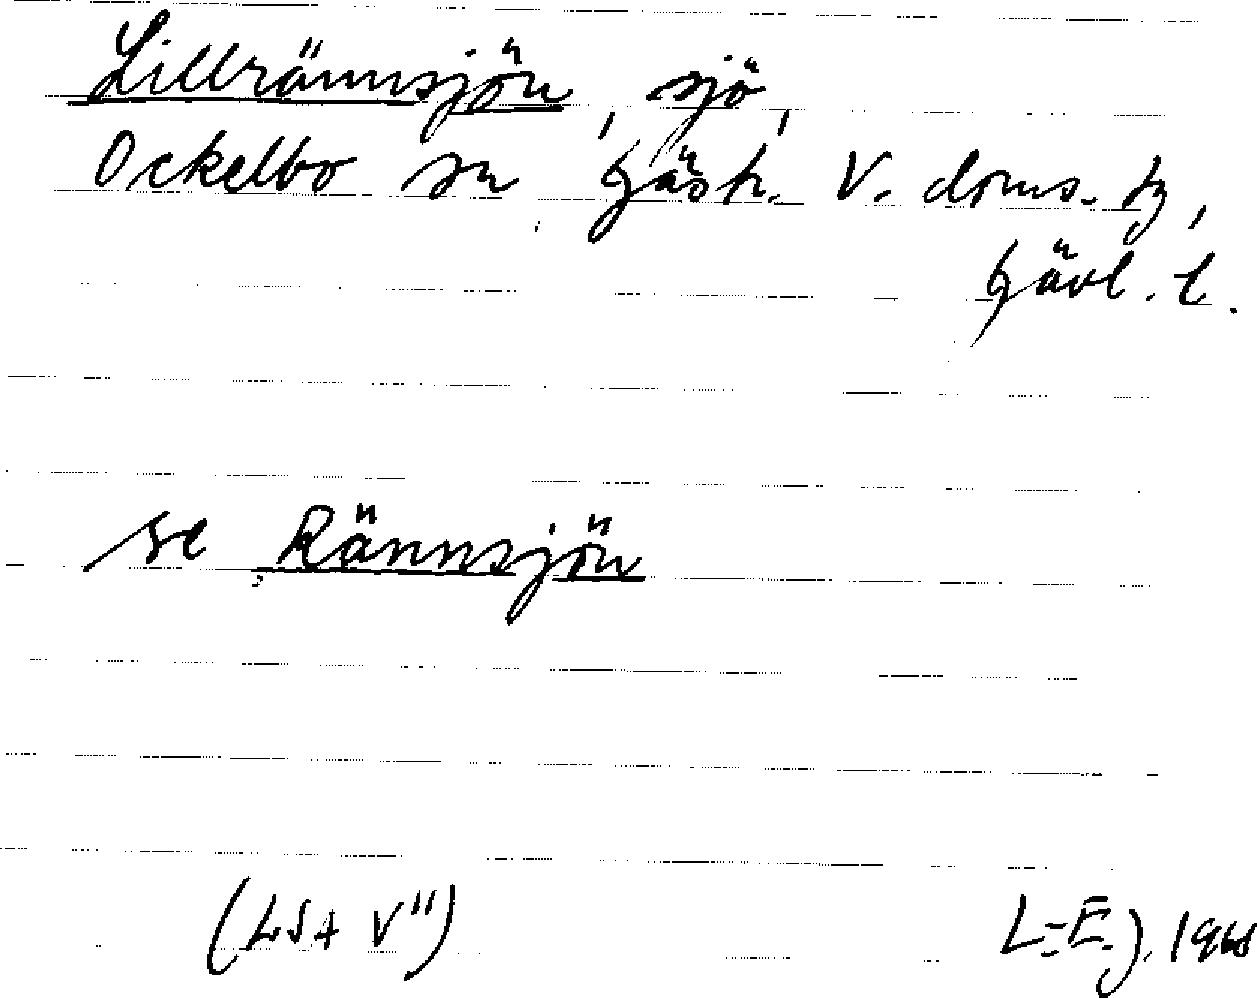 Lillrännsjön, sjö,
Ockelbo sn Gästr. V. doms. tg,
Gävl. l.
se Rännsjön
(LSA V")
L-E. J. 1968